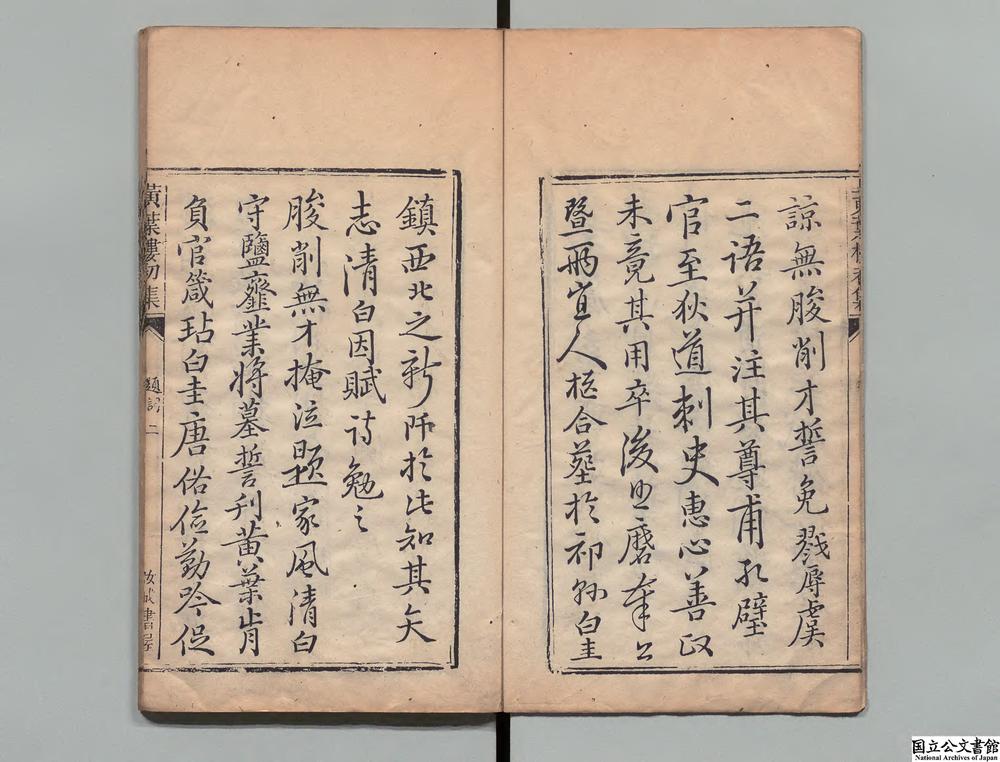 諒無朘削才誓免戮辱虞
二語并注其尊甫孔璧
官至狄道刺史惠心善政
未竟其用卒後思磨奉公
暨兩宜人柩合葬於祁縣白圭
鎮西北之新阡於此知其矢
志清白因賦詩勉之
朘削無才掩泣題家風清白
守鹽虀業將墓誓刊黃葉肯
負官箴玷白圭唐俗儉勤吟促
黃葉樓初集
題詞 二
国立公文書館
National Archives of Japan